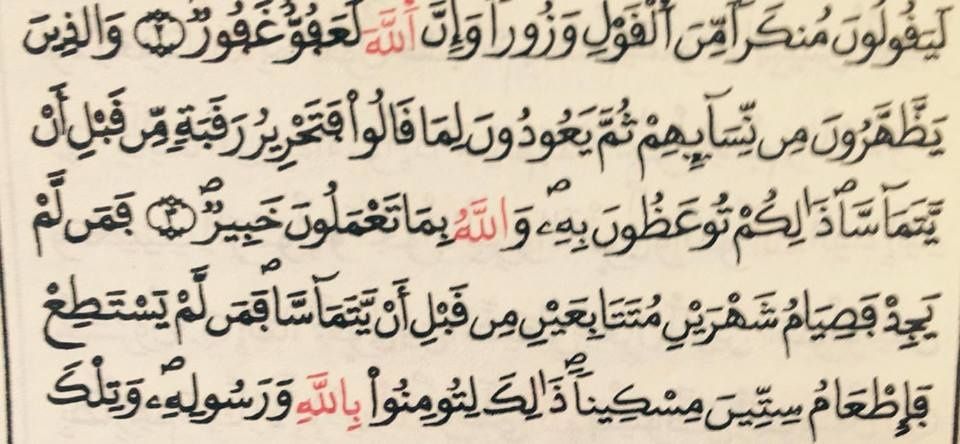 لَيَقُولُونَ مُنكَراٗ مِّنَ اَ۬لْقَوْلِ وَزُوراٗ وَإِنَّ اَ۬للَّهَ لَعَفُوٌّ غَفُورٞۖ ٢ وَالذِينَ
يَظَّهَّرُونَ مِن نِّسَآئِهِمْ ثُمَّ يَعُودُونَ لِمَا قَالُواْ فَتَحْرِيرُ رَقَبَةٖ مِّن قَبْلِ أَنْ
يَّتَمَآسَّاۖ ذَٰلِكُمْ تُوعَظُونَ بِهِۦۖ وَاللَّهُ بِمَا تَعْمَلُونَ خَبِيرٞۖ ٣ فَمَن لَّمْ
يَجِدْ فَصِيَامُ شَهْرَيْنِ مُتَتَابِعَيْنِ مِن قَبْلِ أَنْ يَّتَمَآسَّاۖ فَمَن لَّمْ يَسْتَطِعْ
فَإِطْعَامُ سِتِّينَ مِسْكِيناٗۖ ذَٰلِكَ لِتُومِنُواْ بِاللَّهِ وَرَسُولِهِۦۖ وَتِلْكَ